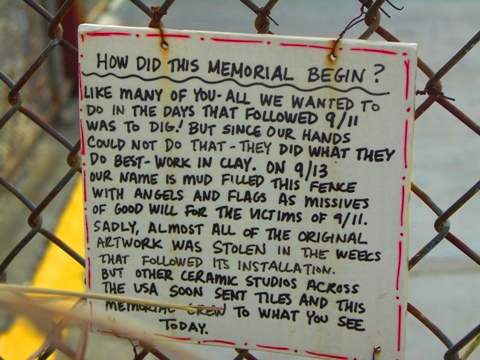 HOW DID THIS MEMORIAL BEGIN?
LIKE MANY OF YOU-ALL WE WANTED TO
DO IN THE DAYS THAT FOLLOWED 9/11
WAS TO DIG! BUT SINCE OUR HANDS
COULD NOT DO THAT-THEY DID WHAT THEY
DO BEST-WORK IN CLAY. ON 9/13
OUR NAME IS MUD FILLED THIS FENCE
WITH ANGELS AND FLAGS AS MISSIVES
OF GOOD WILL FOR THE VICTIMS OF 9/11.
SADLY, ALMOST ALL OF THE ORIGINAL
ARTWORK WAS STOLEN IN THE WEEKS
THAT FOLLOWED ITS INSTALLATION.
BUT OTHER CERAMIC STUDIOS ACROSS
THE USA SOON SENT TILES AND THIS
MEMORIAL GREW TO WHAT YOU SEE
TODAY.